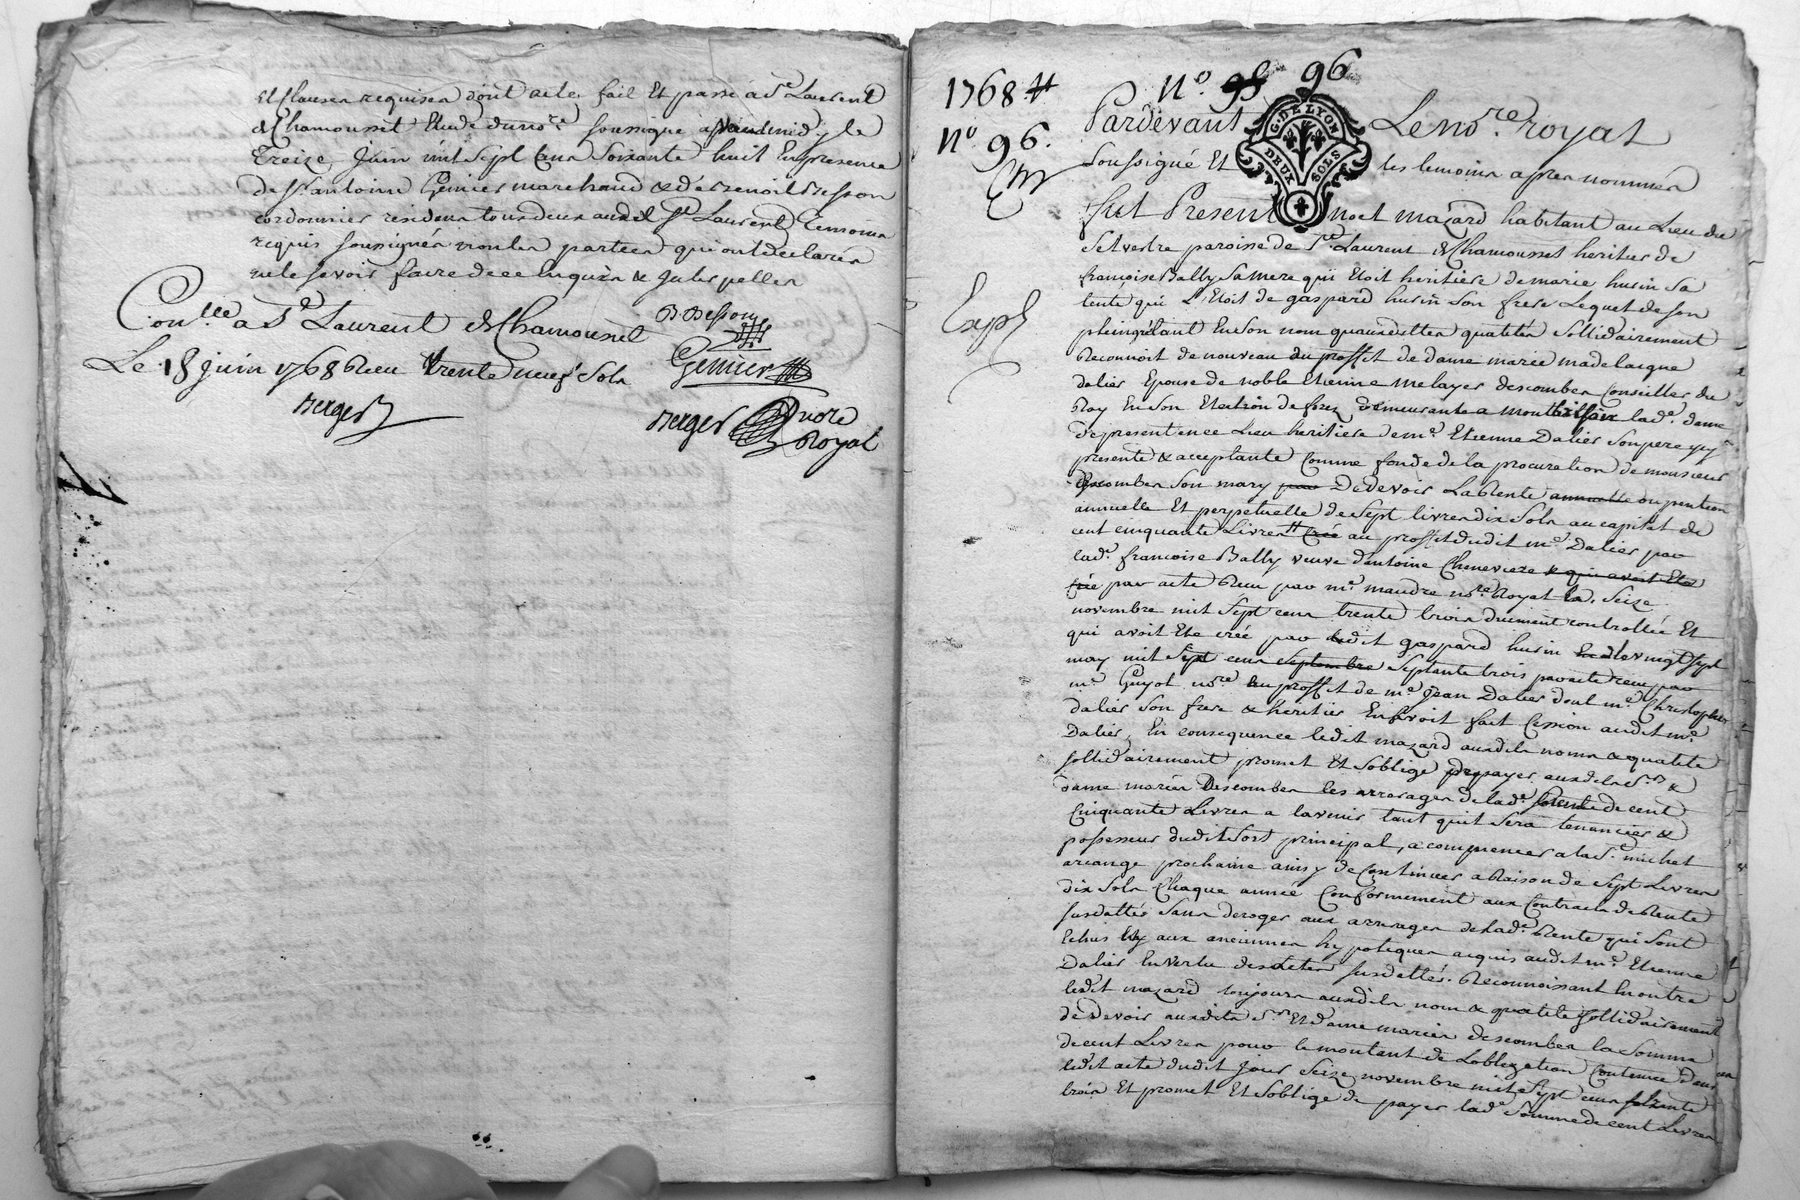 et Clauses requises dont acte fait et passé a St Laurent
de Chamousset Etude du nore. soussigné apres midy le
treize juin mil sept cens soixante huit En presence
de sr antoine Genier marchand & de benoit besson
cordonnier residens tous deux audit St Laurent temoins
requis soussignés non les parties qui ont declarés
ne le scavoir faire de ce Enquis & Interpellés
Conllé a St Laurent de Chamousset
Le 18 juin 1768 Reçu trente neuf Sols
Berger
B Besson
Genier
Berger
nore
Royal
1768 #
no. 96.
Expl
No. 98 96
G. DE LYON
DEUX SOLS
Pardevant Le nore. royal
Soussigné Et les temoins apres nommés
fut Present noel mazard habitant au Lieu de
Selvestre paroisse de St Laurent de Chamousset heritier de
françoise Bally sa mere qui Etoit heritiere de marie husin sa
tente qui L'Etoit de gaspard husin son frere Lequel de son
plein gré tant En son nom qu'auxdittes qualités sollidairement
Reconnoit de nouveau au proffit de dame marie madelaigne
dalier Epouse de noble Etienne melayer descombes Conseiller du
Roy En son Election de forez demeurante a montbrison lade. dame
de present en ce Lieu heritiere de me. Etienne Dalier son pere icy
presente & acceptante Comme fondé de la procuration de monsieur
descombes son mary par De devoir La Rente annuelle ou pention
annuelle Et perpetuelle de sept livres dix sols au capital de
cent cinquante Livres creé au proffit dudit me. Dalier par
lade. francoise Bally veuve d'antoine Cheneviere & qui avoit Eté
creé par acte Reçu par me. maudre nore. Royal le. seize
novembre mil sept cens trente trois duement controllée Et
qui avoit Eté creé par ledit gaspard husin le vingt sept
may mil sept cens septembre septante trois par acte reçu par
me. Guyot nore. au proffit de me. Jean Dalier dont me. Christophe
dalier son frere & heritier En avoit fait Cession audit me.
Dalier, En consequence ledit mazard auxdits noms & qualités
sollidairement promet Et soblige de payer auxdits srs. &
dame mariés Descombes les arrerages de lade. Rente de cent
Cinquante Livres a lavenir tant qu'il sera tenancier &
possesseur dudit sort principal, a commencer a la st. michel
arcange prochaine ainsy de Continuer a Raison de sept Livres
dix sols Chaque année Conformement aux Contracts de Rente
susdattés sans deroger aux arrerages de lade. Rente qui sont
Echus ny aux anciennes hypoteques acquis audit me. Etienne
Dalier En vertu desdits susdattés. Reconnoissant En outre
ledit mazard toujours auxdits noms & qualités sollidairement
de Devoir auxdits srs. Et dame mariés descombes la somme
de cent Livres pour le montant de Lobligation Contenue dans
ledit acte dudit jour seize novembre mil sept cens trente
trois Et promet Et soblige de payer lade. somme de cent Livres